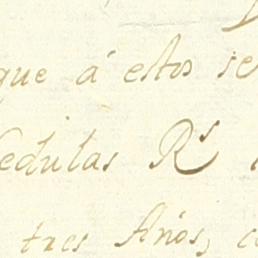 que á estos se
Cedulas Rs
tres Años, c